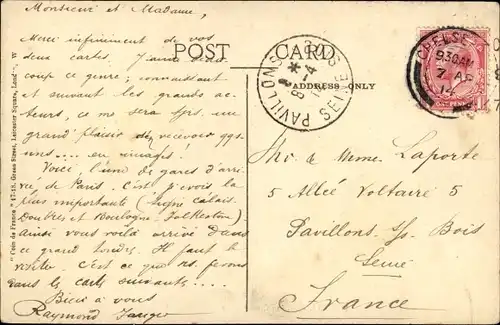 Monsieur et Madame,
Merci infiniment de vos
deux cartes. J'aime beau-
coup ce genre; connaissant
et suivant les grands ac-
teurs, ce me sera tjrs. un
grand plaisir de recevoir qqs-
uns.... en images!
Voici, l'une de gares d'arri-
vée de Paris. C'est, je crois la
plus importante (ligne Calais-
Douvres et Boulogne-Folkeston)
ainsi vous voilà arrivé dans
ce grand Londres. Il faut le
visiter. C'est ce que ns. ferons
dans les cartes suivantes....
Bien à vous
Raymond
"Coin de France" 17-18, Green Street, Leicester Square, Lond. W
POST CARD
ADDRESS ONLY
PAVILLONS S. BOIS
8 -4
SEINE
CHELSEA
9.30 AM
7 AP
14
ONE PENNY
Mr. & Mme. Laporte
5 Allée Voltaire 5
Pavillons s/s. Bois
Seine
France